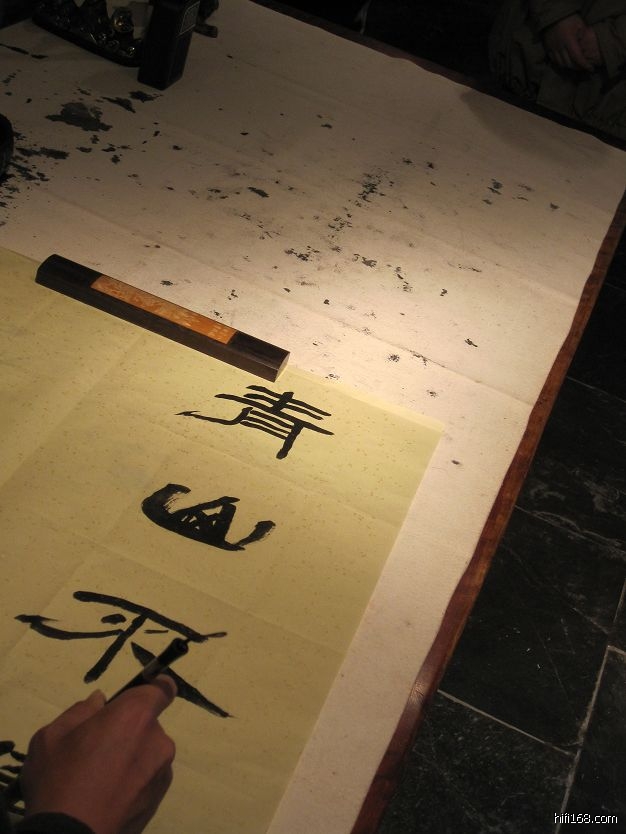 青山不
hifi168.com